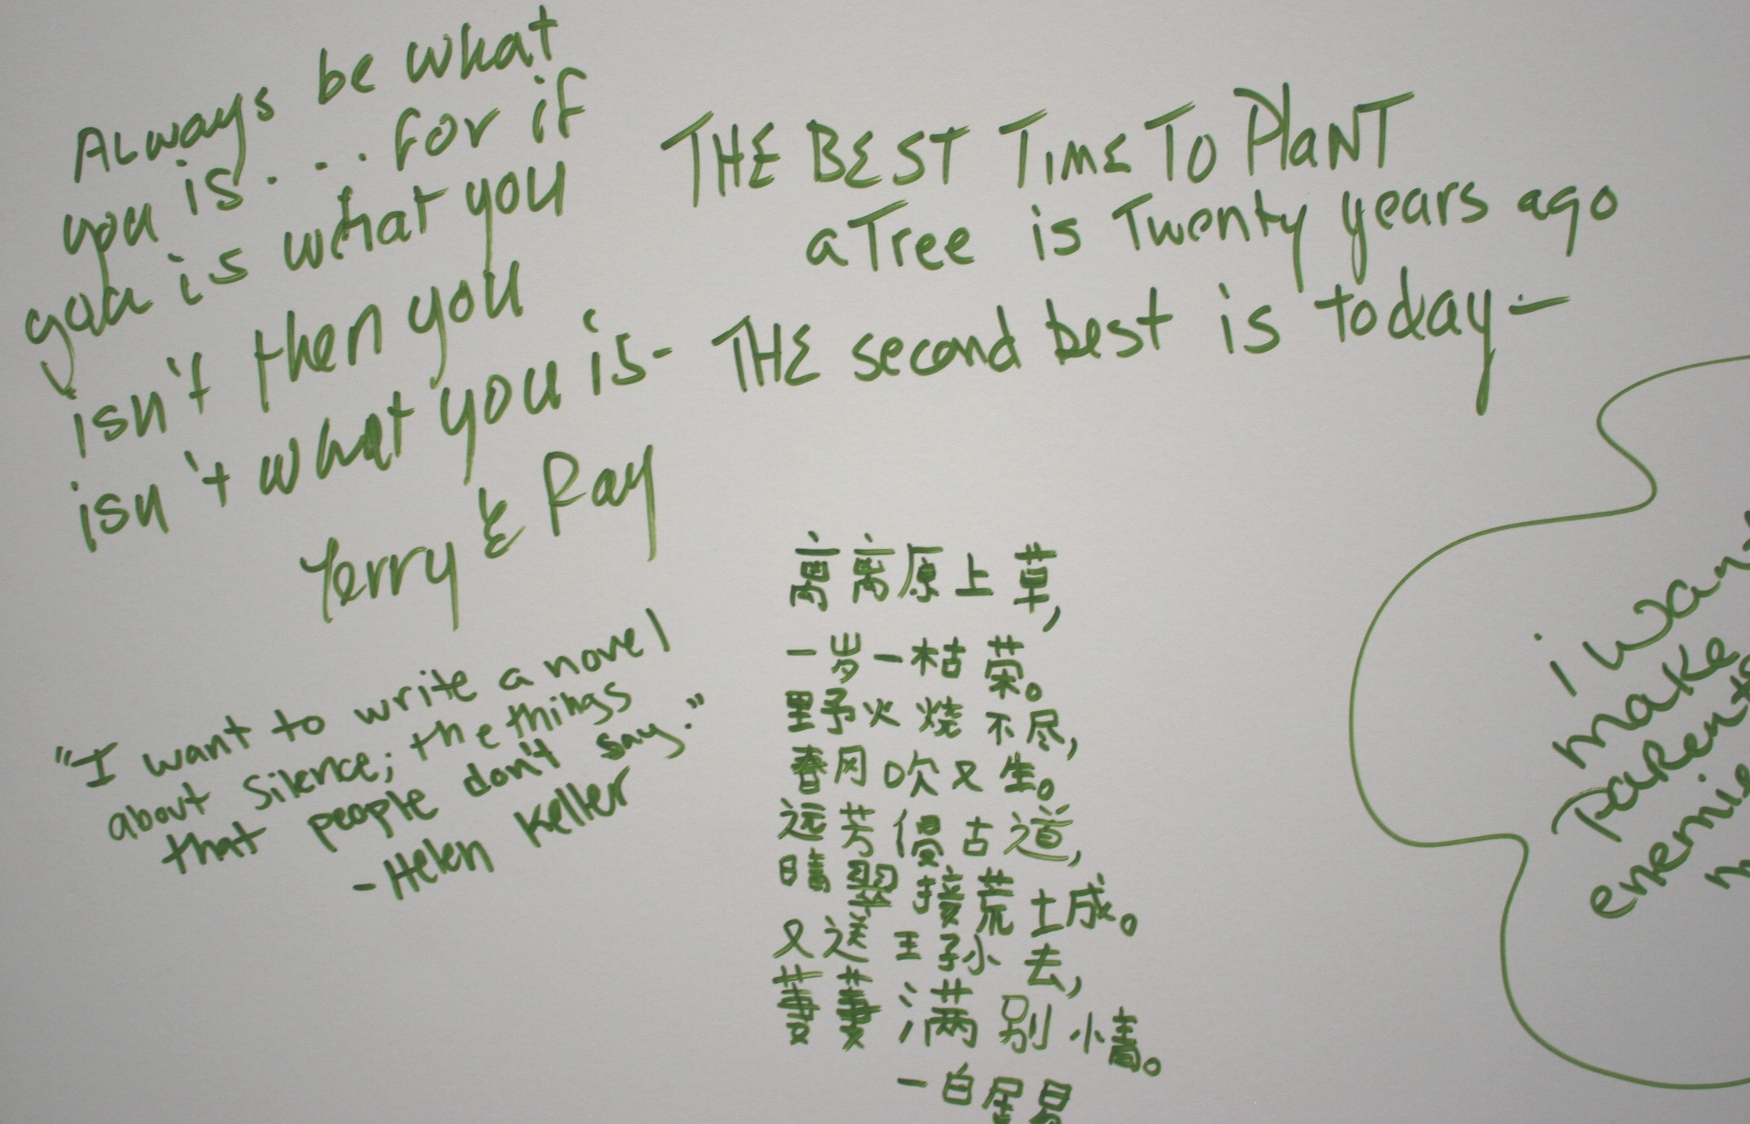 ALways be what
you is.... for if
you is what you
isn't then you
isn't what you is-
Terry & Ray
THE BEST TIME TO PlaNT
a Tree is Twenty years ago
THE second best is today-
"I want to write a novel
about Silence; the things
that people don't say."
-Helen Keller
离离原上草,
一岁一枯荣。
野火烧不尽,
春风吹又生。
远芳侵古道,
晴翠接荒城。
又送王孙去,
萋萋满别情。
-白居易
i wan
make
parent
enemie